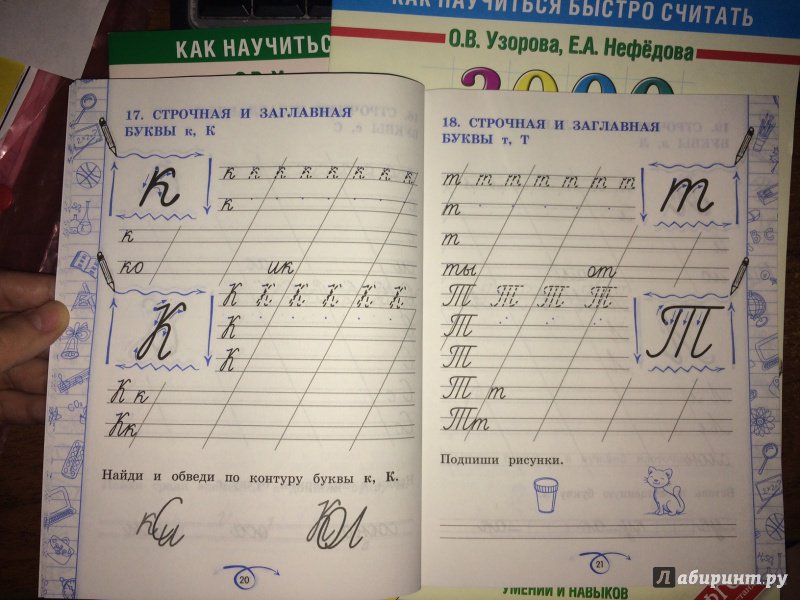 КАК НАУЧИТЬСЯ БЫСТРО СЧИТАТЬ
О.В. Узорова, Е.А. Нефёдова
3000
КАК НАУЧИТЬС
17. СТРОЧНАЯ И ЗАГЛАВНАЯ
БУКВЫ к, К
к
к к к к к к к к
к
к
ко ик
К
К К К К К К
К
К
К к
Кк
Найди и обведи по контуру буквы к, К.
20
18. СТРОЧНАЯ И ЗАГЛАВНАЯ
БУКВЫ т, Т
т т т т т т т
т
т
т
ты от
Т Т Т Т
Т
Т
Т
Т т
Тт
Подпиши рисунки.
21
УМЕНИЙ И НАВЫКОВ
Лабиринт.ру